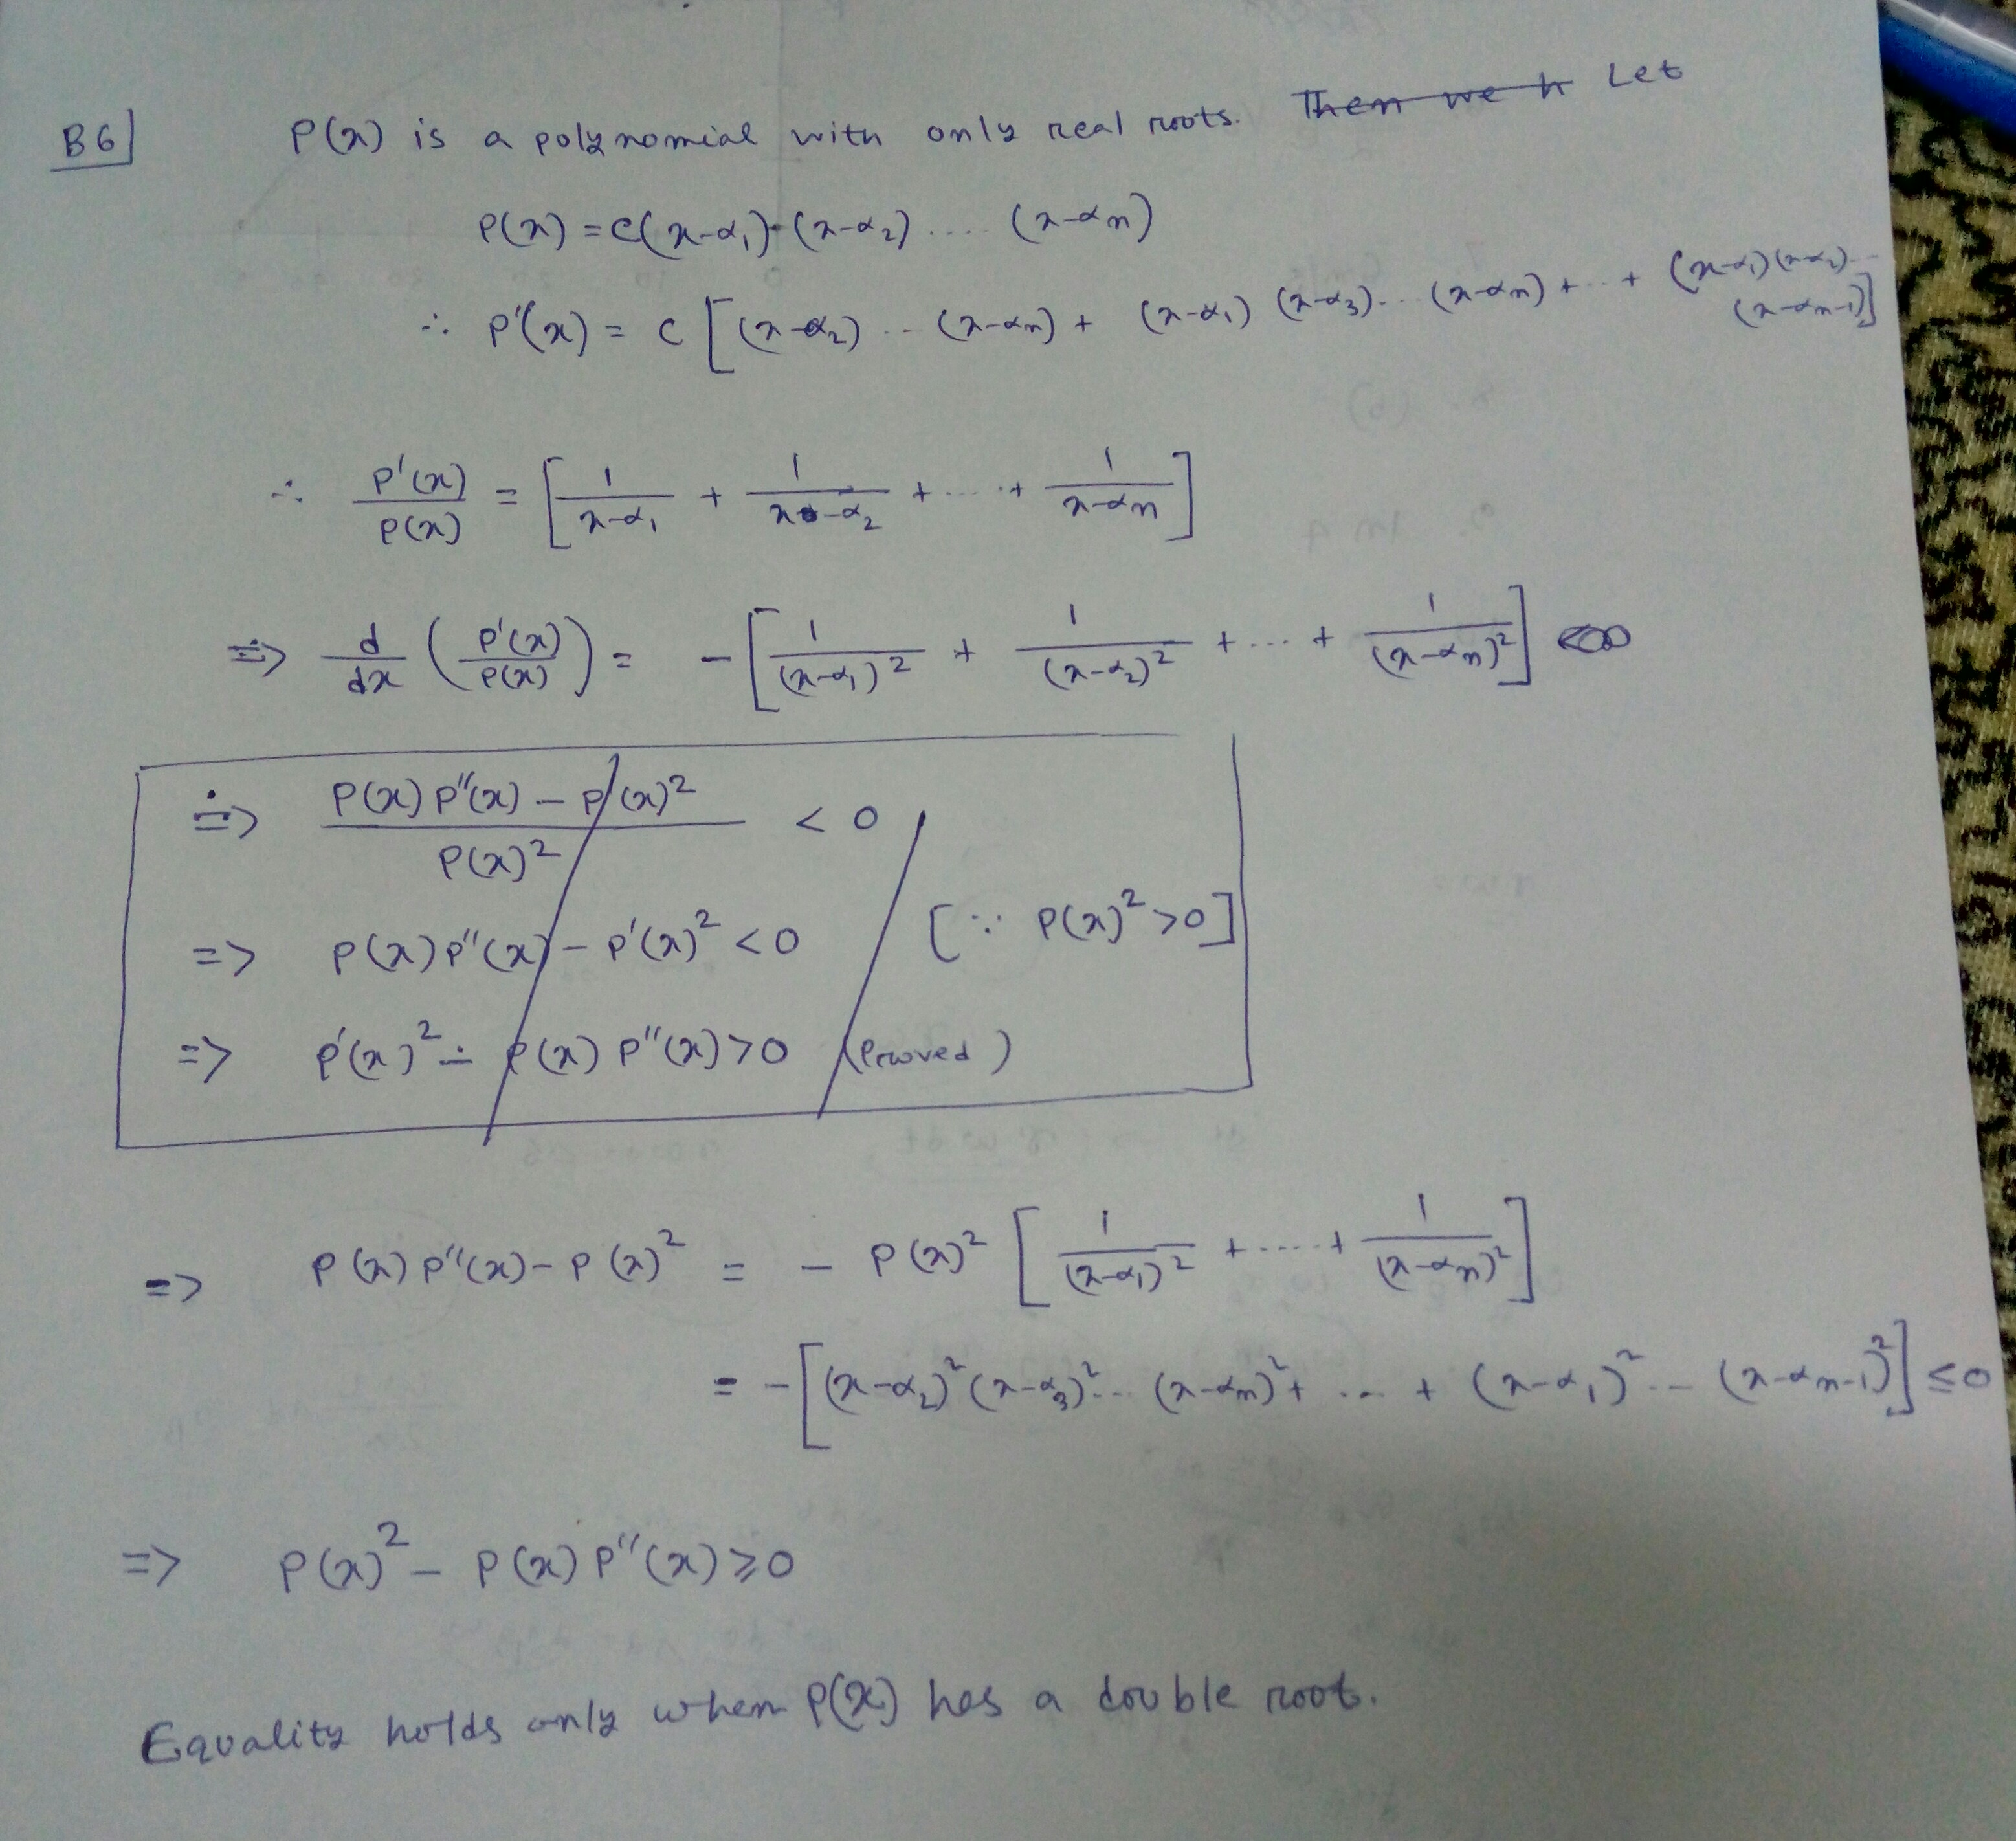 B6] P(x) is a polynomial with only real roots. ~~Then we h~~ Let
P(x) = c(x-α₁)·(x-α₂) .... (x-αn)
∴ P'(x) = c [(x-α₂) .. (x-αn) + (x-α₁) (x-α₃)... (x-αn) + ... + (x-α₁)(x-α₂)...
(x-αn-1)]
∴ P'(x)/P(x) = [1/(x-α₁) + 1/(x-α₂) + ..... + 1/(x-αn)]
=> d/dx (P'(x)/P(x)) = -[1/(x-α₁)² + 1/(x-α₂)² + ... + 1/(x-αn)²]
∴=> (P(x) P''(x) - P'(x)²)/P(x)² < 0
=> P(x) P''(x) - P'(x)² < 0 [∵ P(x)² > 0]
=> P'(x)² - P(x) P''(x) > 0 (Proved)
=> P(x) P''(x) - P(x)² = - P(x)² [1/(x-α₁)² + ..... + 1/(x-αn)²]
= -[(x-α₂)² (x-α₃)²... (x-αn)² + ... + (x-α₁)² ... (x-αn-1)²] ≤ 0
=> P(x)² - P(x) P''(x) ≥ 0
Equality holds only when P(x) has a double root.